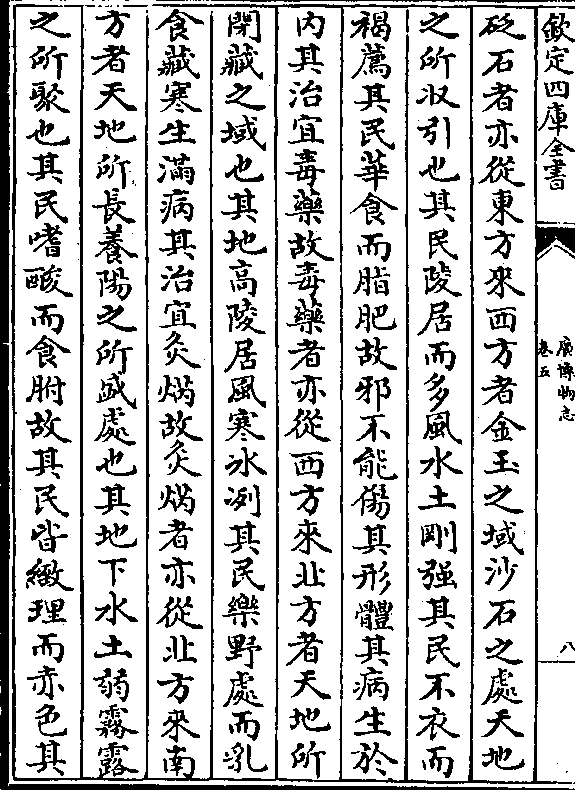 欽定四庫全書
廣博物志
卷五
八
砭石者亦從東方來西方者金玉之域沙石之處天地
之所收引也其民陵居而多風水土剛强其民不衣而
褐薦其民華食而脂肥故邪不能傷其形體其病生於
内其治宜毒藥故毒藥者亦從西方來北方者天地所
閉藏之域也其地高陵居風寒冰冽其民樂野處而乳
食藏寒生滿病其治宜灸焫故灸焫者亦從北方來南
方者天地所長養陽之所盛處也其地下水土弱霧露
之所聚也其民嗜酸而食胕故其民皆緻理而赤色其